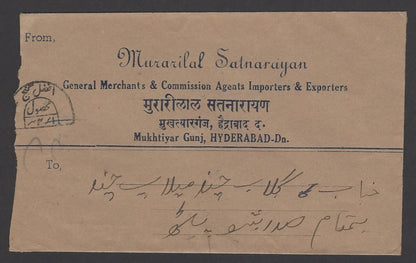 From,
Murarilal Satnarayan
General Merchants & Commission Agents Importers & Exporters
मुरारीलाल सतनारायण
मुखत्यारगंज, हैद्राबाद द.
Mukhtiyar Gunj, HYDERABAD-Dn.
To,
جناب گلاب چند میلاپ چند
بمقام صدر